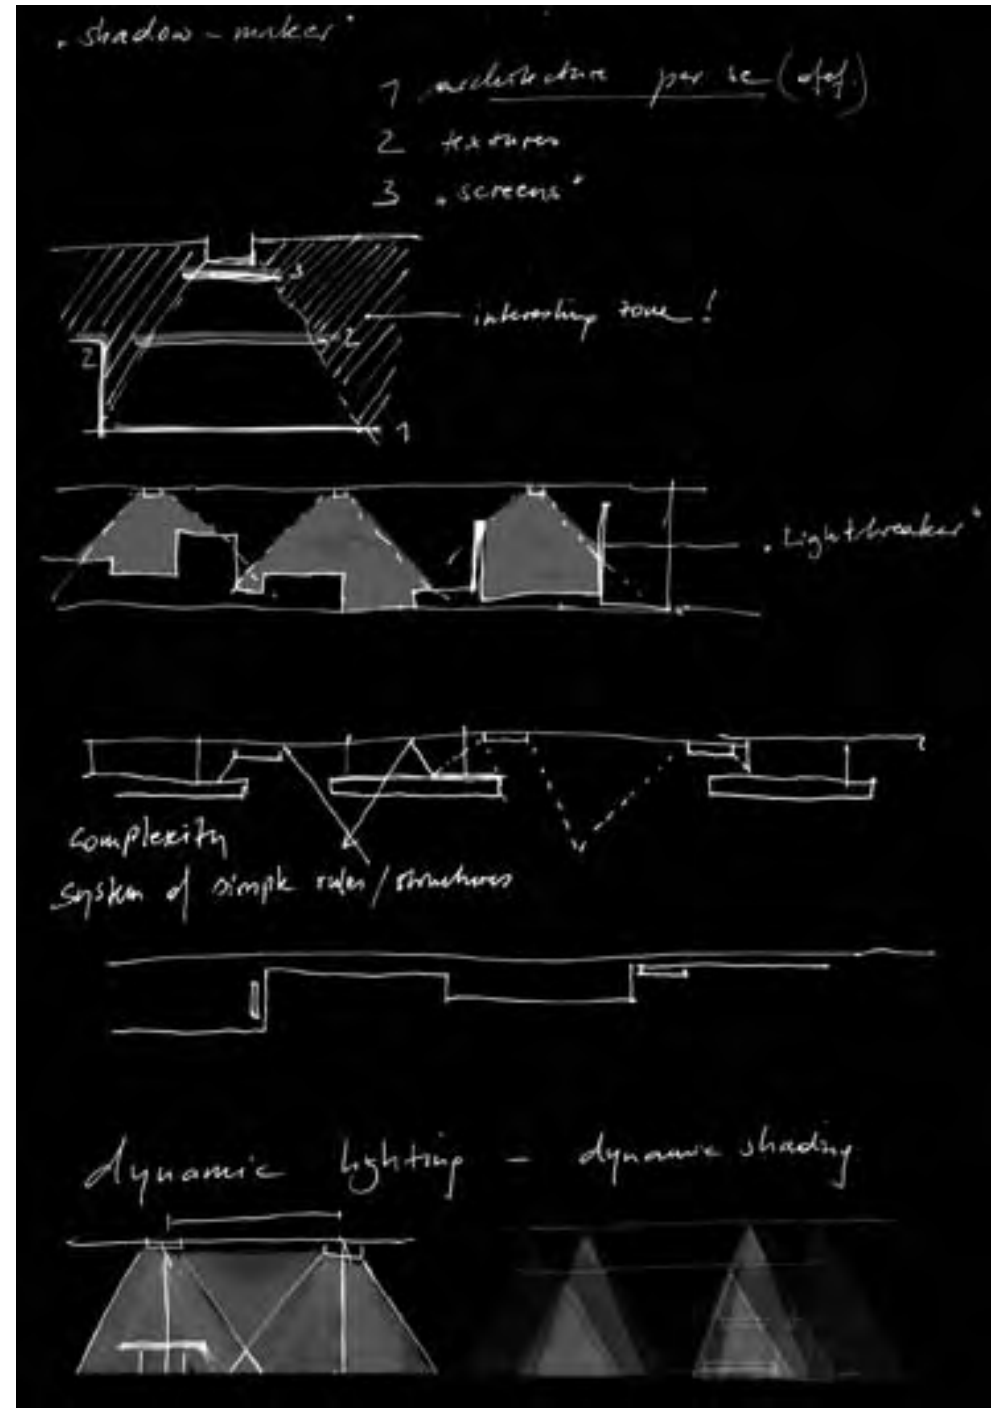 „shadow-maker"
1 architecture per se (off.)
2 textures
3 „screens"
3
interesting zone!
2
2
1
„Lightbreaker"
Complexity
System of simple rules/structures
dynamic lighting - dynamic shading